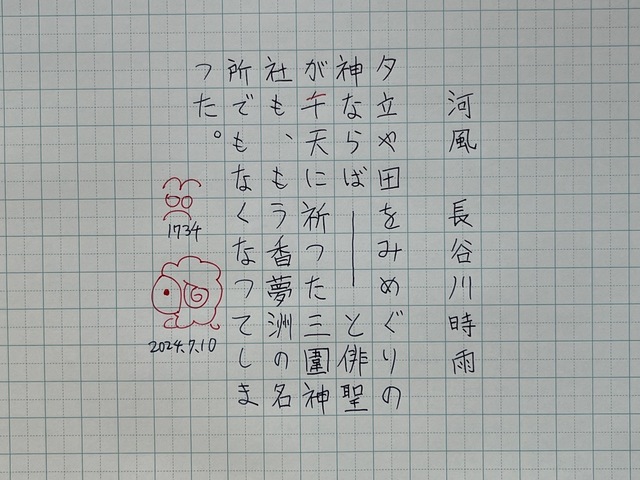 河風　長谷川時雨
夕立や田をみめぐりの
神ならば――と俳聖
が午天に祈つた三圍神
社も、もう香夢洲の名
所でもなくなつてしま
つた。
1734
2024.7.10